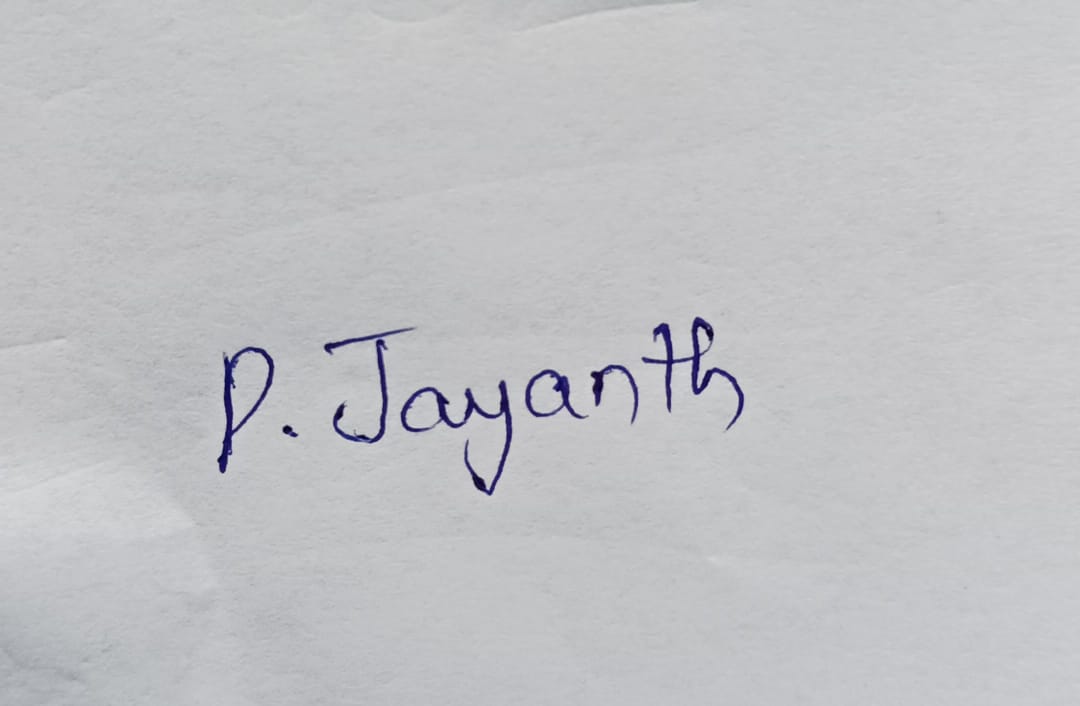 P. Jayanth